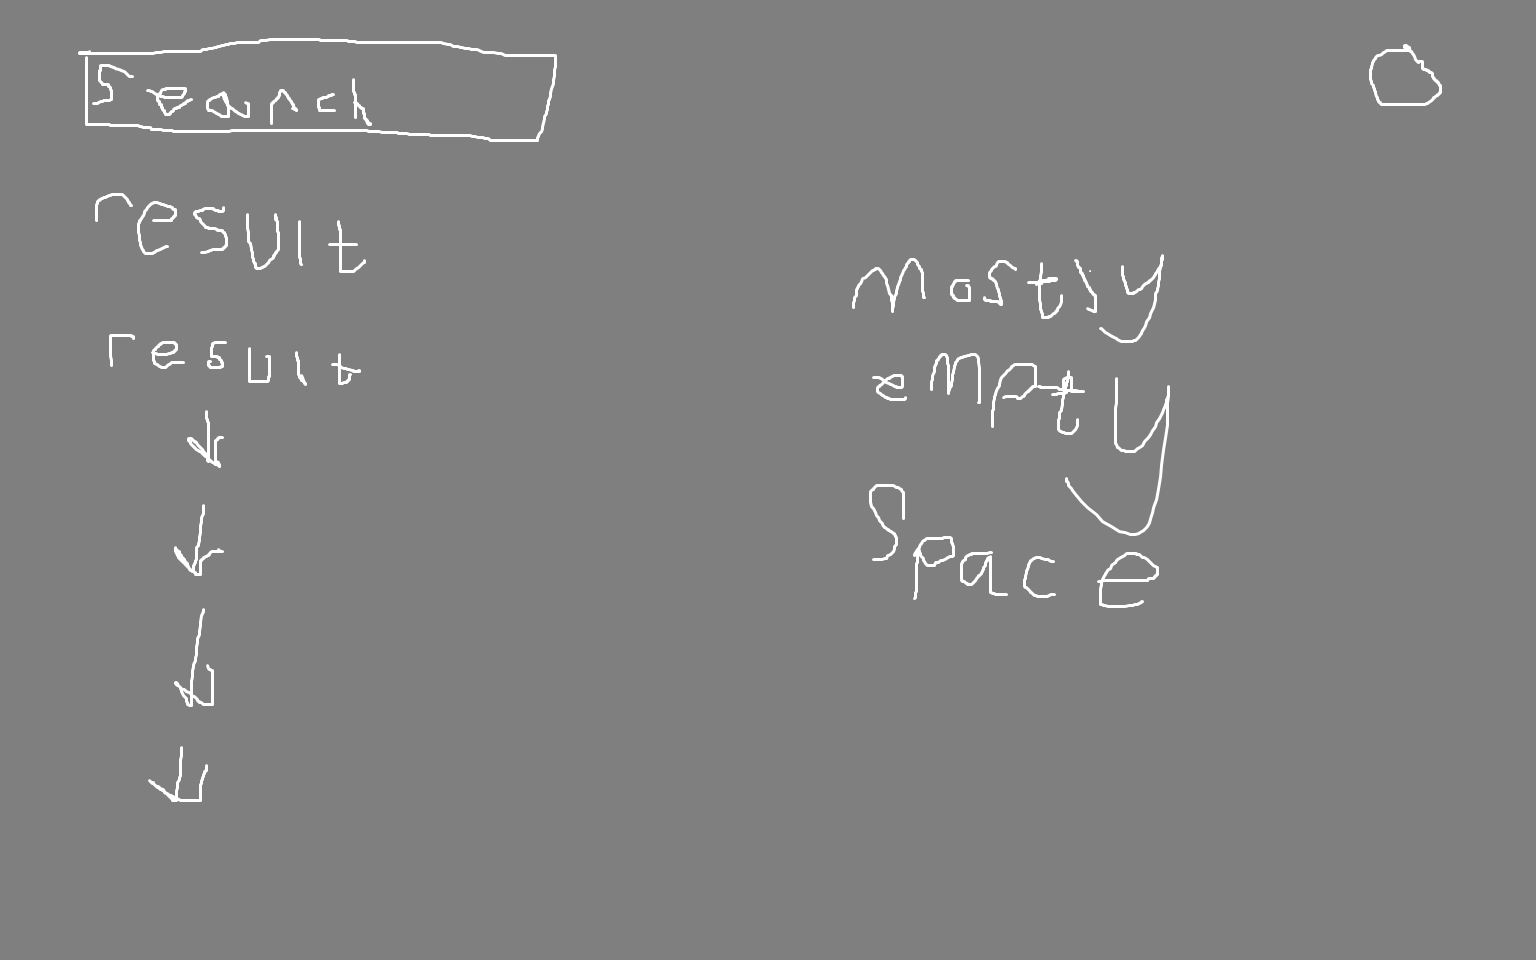 Search
result
result
mostly
empty
Space